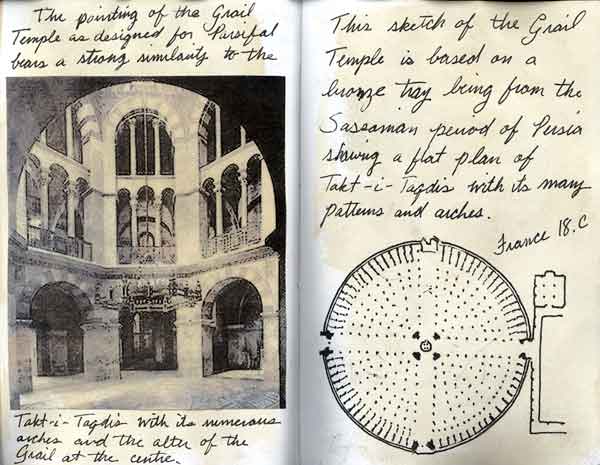 The painting of the Grail
Temple as designed for Parsifal
bears a strong similarity to the
Takt-i-Taqdis with its numerous
arches and the alter of the
Grail at the centre.
This sketch of the Grail
Temple is based on a
bronze tray being from the
Sassanian period of Persia
showing a flat plan of
Takt-i-Taqdis with its many
patterns and arches.
France 18.C